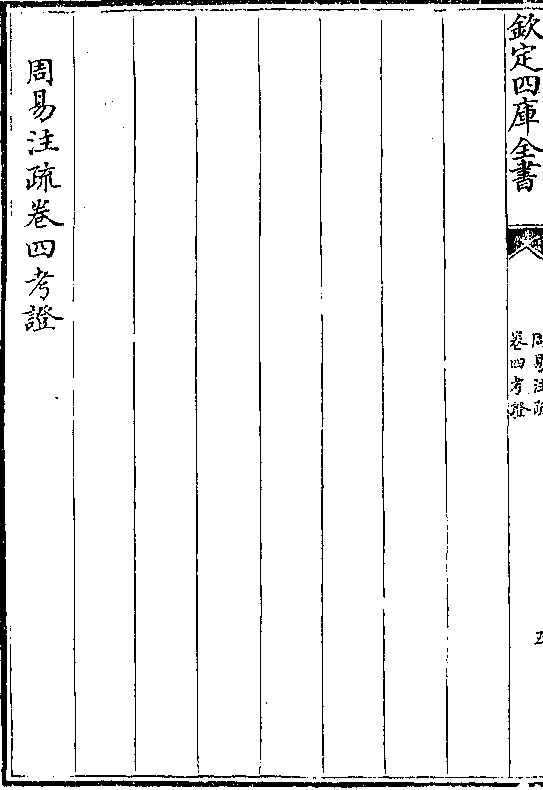 欽定四庫全書
周易注疏
卷四考證
五
周易注疏卷四考證